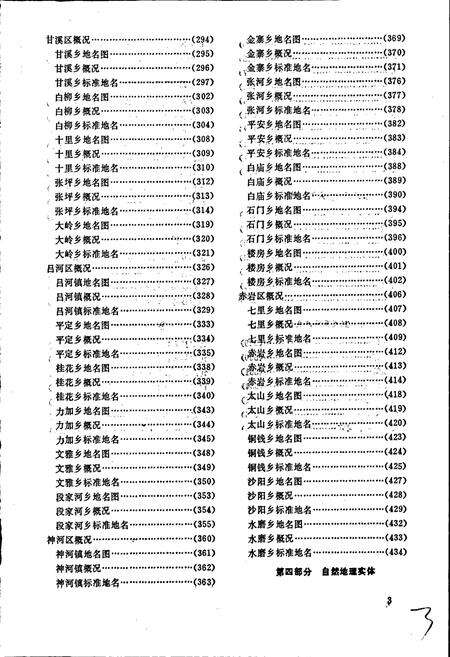 甘溪区概况……………………(294)
甘溪乡地名图…………………(295)
甘溪乡概况……………………(296)
甘溪乡标准地名………………(297)
白柳乡地名图…………………(302)
白柳乡概况……………………(303)
白柳乡标准地名………………(304)
十里乡地名图…………………(308)
十里乡概况……………………(309)
十里乡标准地名………………(310)
张坪乡地名图…………………(312)
张坪乡概况……………………(313)
张坪乡标准地名………………(314)
大岭乡地名图…………………(319)
大岭乡概况……………………(320)
大岭乡标准地名………………(321)
吕河区概况……………………(326)
吕河镇地名图…………………(327)
吕河镇概况……………………(328)
吕河镇标准地名………………(329)
平定乡地名图…………………(333)
平定乡概况……………………(334)
平定乡标准地名………………(335)
桂花乡地名图…………………(338)
桂花乡概况……………………(339)
桂花乡标准地名………………(340)
力加乡地名图…………………(343)
力加乡概况……………………(344)
力加乡标准地名………………(345)
文雅乡地名图…………………(348)
文雅乡概况……………………(349)
文雅乡标准地名………………(350)
段家河乡地名图………………(353)
段家河乡概况…………………(354)
段家河乡标准地名……………(355)
神河区概况……………………(360)
神河镇地名图…………………(361)
神河镇概况……………………(362)
神河镇标准地名………………(363)
金寨乡地名图…………………(369)
金寨乡概况……………………(370)
金寨乡标准地名………………(371)
张河乡地名图…………………(376)
张河乡概况……………………(377)
张河乡标准地名………………(378)
平安乡地名图…………………(382)
平安乡概况……………………(383)
平安乡标准地名………………(384)
白庙乡地名图…………………(388)
白庙乡概况……………………(389)
白庙乡标准地名………………(390)
石门乡地名图…………………(394)
石门乡概况……………………(395)
石门乡标准地名………………(396)
楼房乡地名图…………………(400)
楼房乡概况……………………(401)
楼房乡标准地名………………(402)
赤岩区概况……………………(406)
七里乡地名图…………………(407)
七里乡概况……………………(408)
七里乡标准地名………………(409)
赤岩乡地名图…………………(412)
赤岩乡概况……………………(413)
赤岩乡标准地名………………(414)
太山乡地名图…………………(418)
太山乡概况……………………(419)
太山乡标准地名………………(420)
铜钱乡地名图…………………(423)
铜钱乡概况……………………(424)
铜钱乡标准地名………………(425)
沙阳乡地名图…………………(427)
沙阳乡概况……………………(428)
沙阳乡标准地名………………(429)
水磨乡地名图…………………(432)
水磨乡概况……………………(433)
水磨乡标准地名………………(434)
第四部分 自然地理实体
3
3